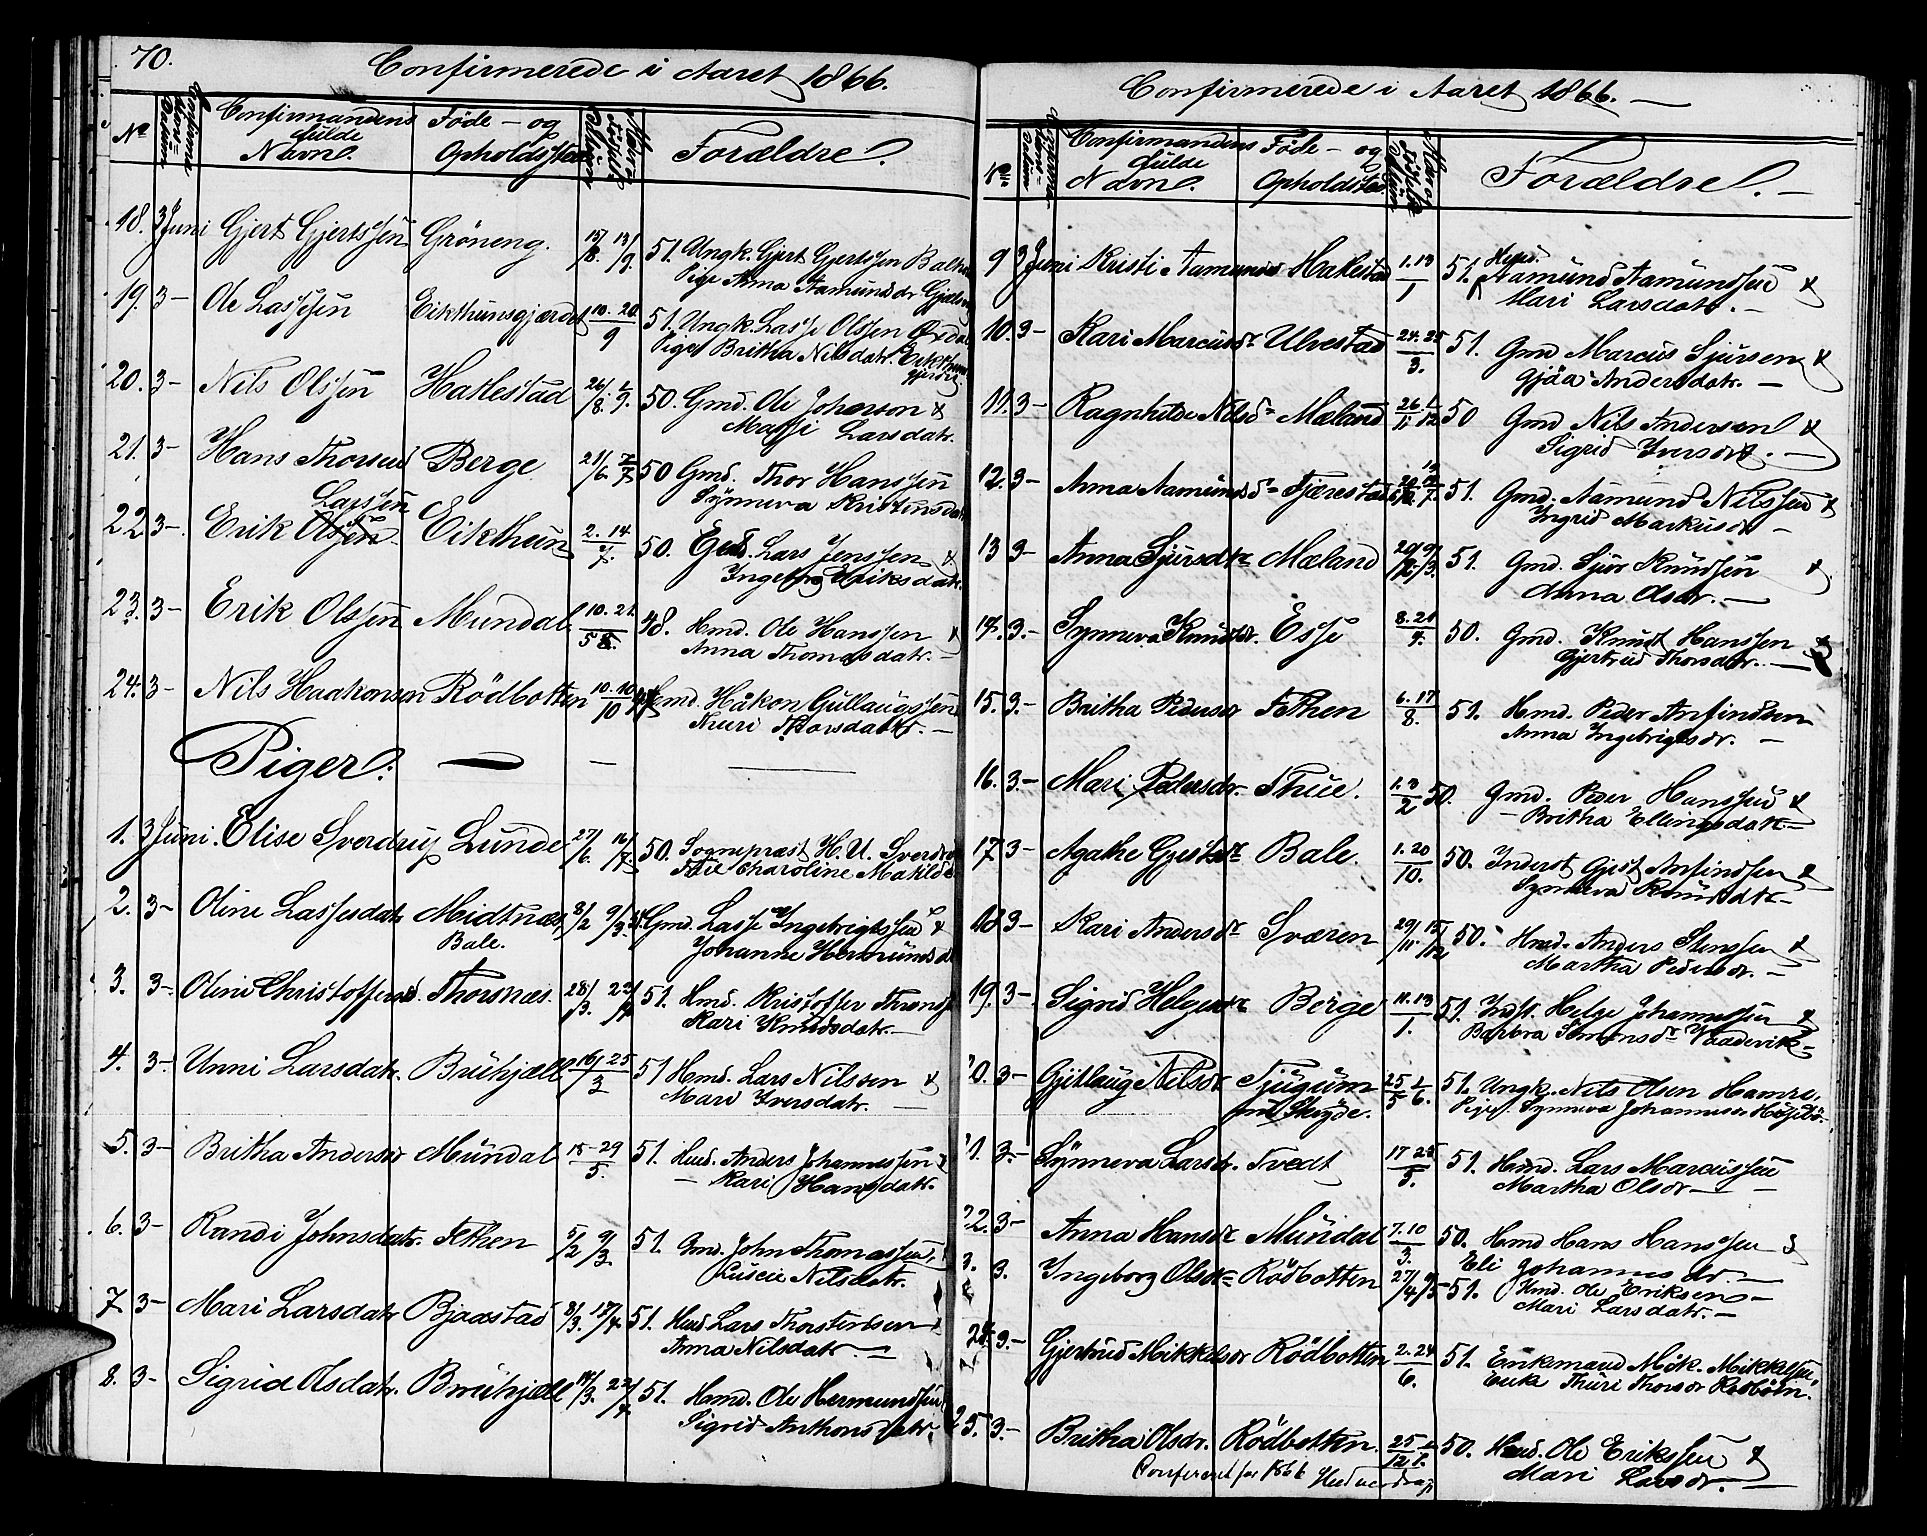 70.
Confirmerede i Aaret 1866.
No Confirmandens fulde Navn. Føde- og Opholdssted Forældre.
18. 3 Juni Gjert Gjertssen Gröneng. 15/8. 13/9. 51. Ungk. Gjert Gjertssen
Pige Anna Aamundsdr
19. 3- Ole Lassesen Eikthunsgjærdet 10. 20/9 51. Ungk. Lasse Olssen
Pige Britha Nilsdatr.
20. 3- Nils Olssen Haklestad 26/8. 1/9. 50. Gmd. Ole Johnson &
Larsdatr.
21. 3- Hans Thorsen Berge 21/6. 7/7. 50 Gmd. Thor Hanssen
Synneva Kristensdatr
Larssen
22. 3- Erik Olssen Eikthun 2. 14/7. 50. Gmd. Lars Jenssen &
Ingeborg Eriksdatr.
23. 3- Erik Olssen Mundal 10. 21. 48. Hmd. Ole Hanssen &
Anna Thomasdatr. -
24. 3- Nils Haakonsen Rödbotten 10. 10/10 Hmd. Håkon Gullaugssen
Thorsdatr. -
Piger. -
1. 3 Juni. Elise Sverdrup Lunde 27/6. 50. Sognepræst H. U. Sverdrup
Caroline
2. 3- Oline Lassesdatr Midtnæs, 8/2 9/3. Gmd. Lasse Ingebrigtssen &
Bale. Johanne Hermunds
3. 3- Oline Christoffersd Thorsnæs. 28/3. 51. Hmd. Kristoffer
Kari Knudsdatr. -
4. 3- Unni Larsdatr. Bruhjæll 16/ 25/3 51 Hmd. Lars Nilssen &
Mari Iversdatr. -
5. 3- Britha Andersd Mundal 15-29/5. 51. Hmd. Anders Johannessen &
- Kari Hansdatr.
6. 3- Randi Johnsdatr. Fethen 5/2 9/3. 51. Gmd. John Thomassen
Nilsdatr.
7. 3- Mari Larsdatr Bjaastad 8/3. 17/4 51. Hmd. Lars Thorstensen
Anna Nilsdatr. -
8. 3- Sigrid Olsdatr. Bruhjæll 51. Hmd. Ole Hermundssen
Sigrid Anthonsdatr.
Confirmerede i Aaret 1866. -
No Confirmandens fulde Navn. Føde- og Opholdsted Forældre. -
9 3 Juni Kristi Aamundsd Haklestad 1. 13/1 51. Hmd. Aamund Aamundssen &
Mari Larsdatr. -
10. 3- Kari Marcusdr Ulvestad 24. 25/3. 51. Gmd Marcus Sjursen &
Gjöa Andersdatr. -
11. 3- Ragnhilde Nilsd Mæland 26/11 1/12 50 Gmd Nils Andersen &
Sigrid Iversdr. -
12. 3- Anna Aamundsd Fjærestad 51. Gmd. Aamund Nilssen &
Ingrid Markusdr -
13 3- Anna Sjursdtr Mæland 20/2 9/3. 51. Gmd. Sjur Knudssen &
Anna Olsdr. -
14. 3- Synneva Knudsdr. Esse 8. 21/4. 50. Gmd. Knud Hanssen &
Gjertrud Thorsdr. -
15. 3- Britha Pedersdr Fethen 6. 17/8. 51. Hmd. Peder Anfindsen
Anna Ingebrigtsdr. -
16. 3- Mari Pedersdr. Thue. 1. 3/2 50. Gmd. Peder Hanssen &
- Britha Ellingsdatr -
17 3- Agathe Gjestsdr Bale. 1. 20/10. 50. Inderst Gjest Anfindssen &
Synneva Knudsdtr -
18 3- Kari Andersdr Sværen 29/11 15/12 50. Hmd. Anders Stenssen &
Martha Pedersdr. -
19. 3- Sigrid Helgesdr Berge 11. 13/1. 51. Indst. Helge Johannessen &
Barbra Simensdr
20. 3- Gjetlaug Nilsdr Tjugum 25/5 1/6. 51. Ungk. Nils Olsen Hamre.
Pige Synneva Johannesdr
21. 3- Synneva Larsdr. Tvedt 17 25/5. 51. Hmd. Lars Marcussen
Martha Olsdr -
22. 3- Anna Hansdr Mundal 7. 10/3. 50. Hmd Hans Hanssen &
Eli Johannesdr. -
3. 3. Ingeborg Olsdr Rödbotten 27/4 9/5 51. Hmd. Ole Eriksen -
Mari Larsdatr. -
24. 3- Gjertrud Mikkelsdr Rödbotten 2. 24/6. 51. Enkemand Mik. Mikkelsen,
Enke Thuri Thorsdr Rödbotn.
25. 3- Britha Olsdr. Rödbotten. 25/12 50. Hmd. Ole Erikssen &
Mari Larsdr. -
Conferert for 1866